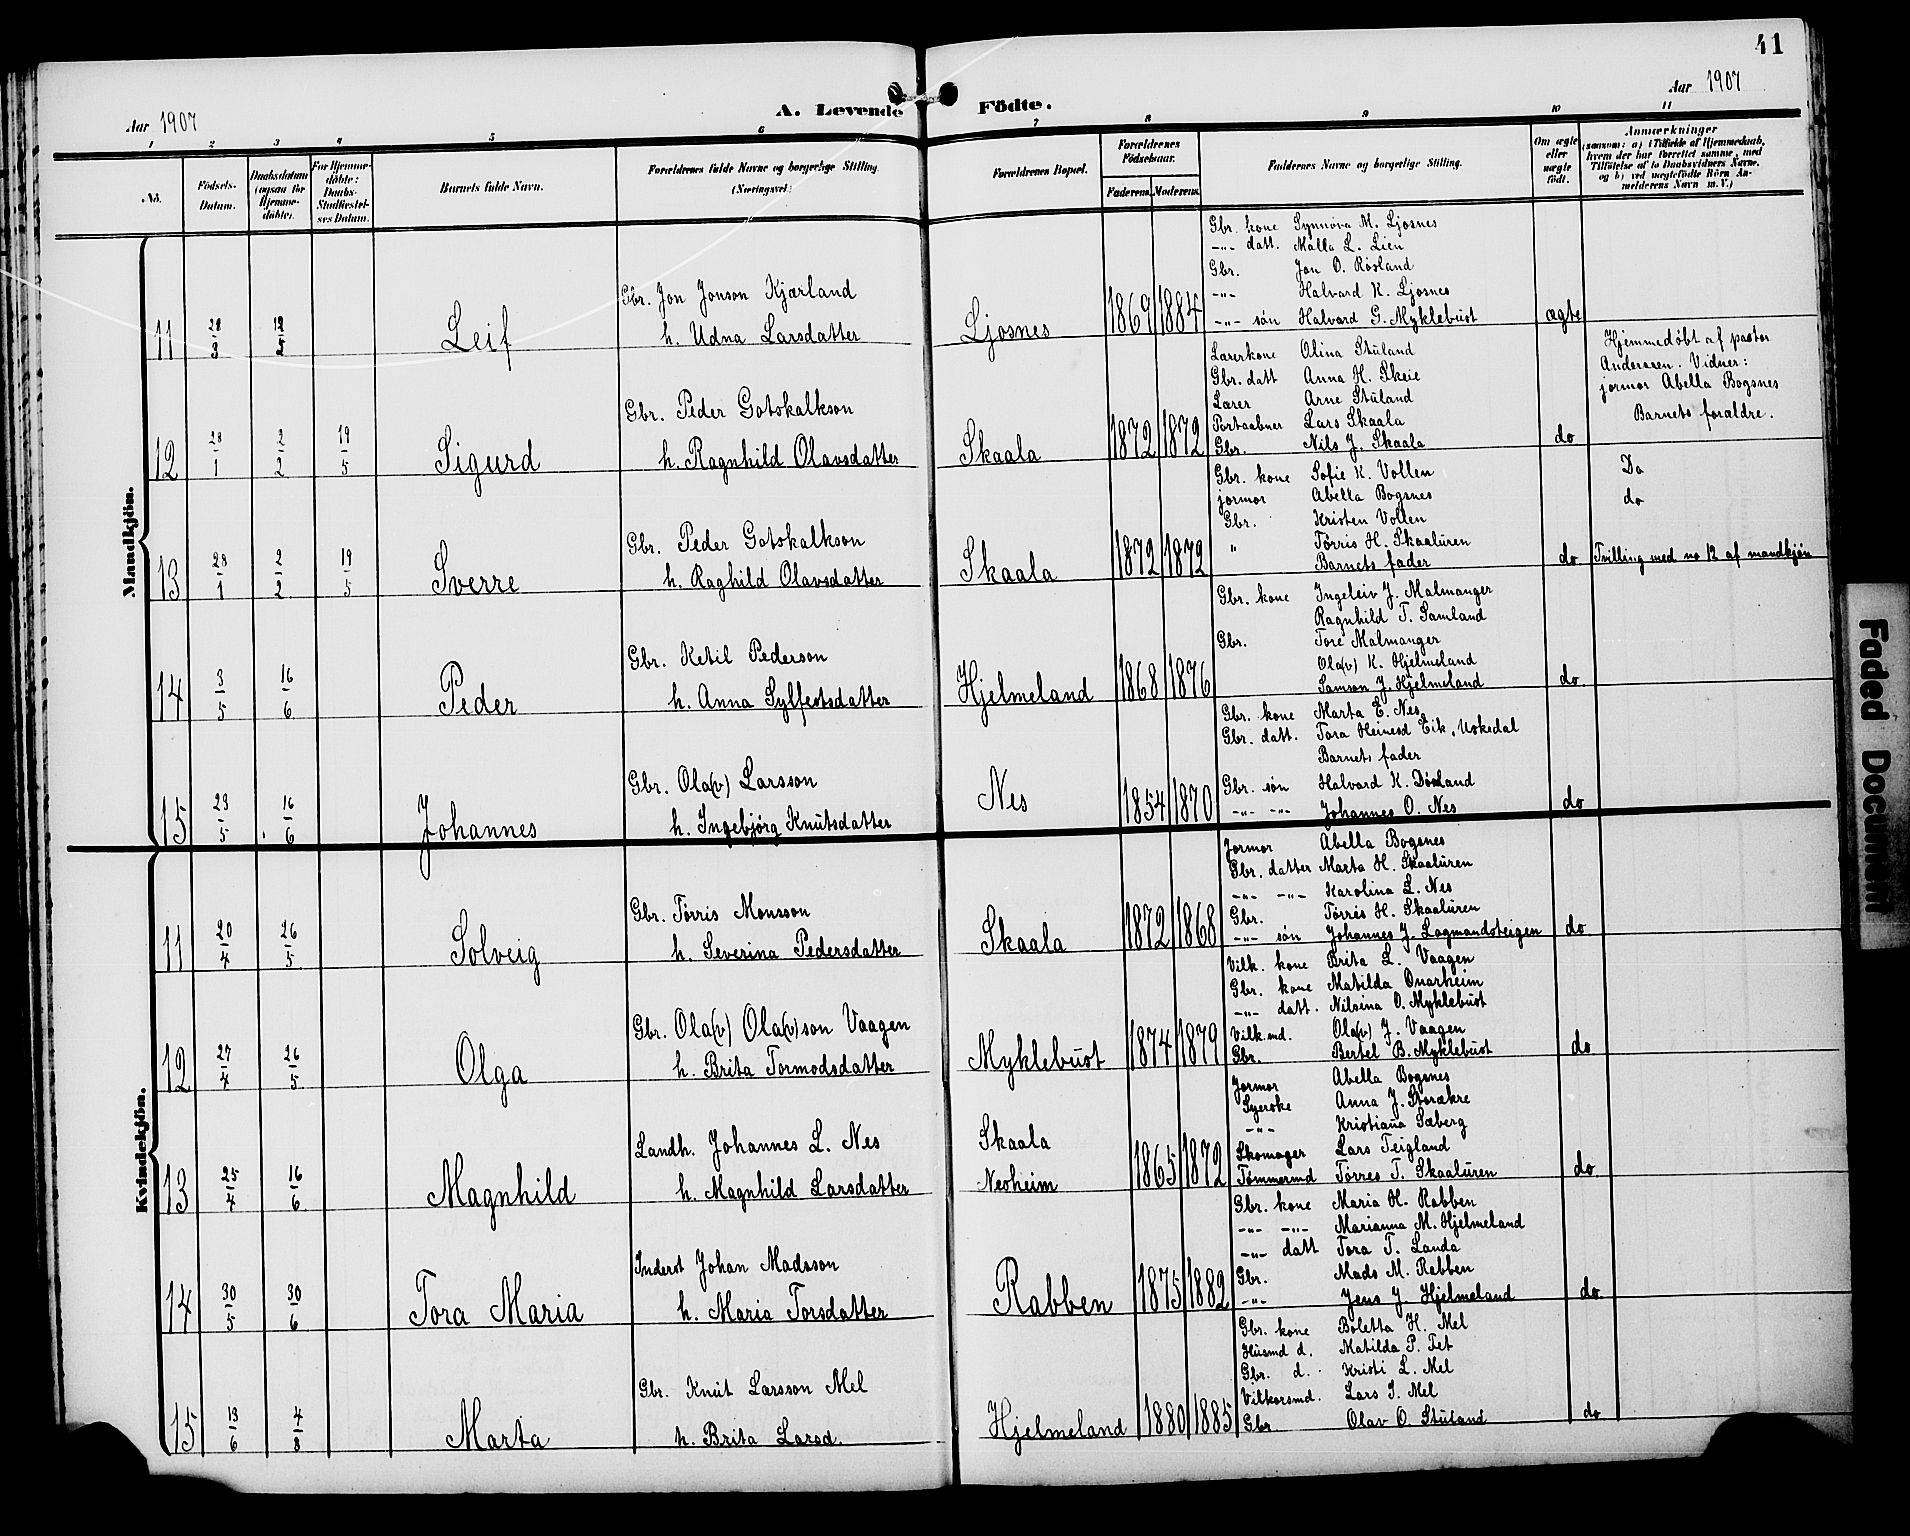 41
Aar 1907
A. Levende Födte.
Aar 1907
1 2 3 4 5 6 7 8 9 10 11
No.
Födsels-Datum.
Daabsdatum (ogsaa for Hjemme-döbte).
For Hjemme-döbte: Daabs-Stadfæstel-ses Datum.
Barnets fulde Navn.
Forældrenes fulde Navne og borgerlige Stilling. (Næringsvei.)
Forældrenes Bopæl.
Forældrenes Födselsaar.
Faderens. Moderens.
Faddernes Navne og borgerlige Stilling.
Om ægte eller uægte født.
Anmærkninger
(saasom: a) i Tilfælde af Hjemmedaab, hvem der har forrettet samme, med Tilföielse af to Daabsvidners Navne, og b) ved uægtefödte Börn An-melderens Navn m. V.)
Mandkjön.
11 28/3 12/5 Leif
Gbr. Jon Jonson Kjærland
h. Udna Larsdatter
Ljosnes 1869 1884
Gbr. kone Synnöva M. Ljosnes
-"- datt. Målla L. Lien
Gbr. Jon O. Røsland
-"- Halvard K. Ljosnes
-"- søn Halvard G. Myklebust
ægte
12 28/1 2/2 19/5 Sigurd
Gbr. Peder Gotskalkson
h. Ragnhild Olavsdatter
Skaala 1872 1872
Lærerkone Olina Stuland
Gbr. datt Anna H. Skeie
Lærer Arne Stuland
Postaabner Lars Skaala
Gbr. Nils J. Skaala
do
Hjemmedøbt af pastor
Andersen. Vidner:
jormor Abella Bogsnes
Barnets forældre.
13 28/1 2/2 19/5 Sverre
Gbr. Peder Gotskalkson
h. Raghild Olavsdatter
Skaala 1872 1872
Gbr. kone Sofie K. Vollen
jormor Abella Bogsnes
Gbr. Kristen Vollen
" Tørris H. Skaaluren
Barnets fader
do
Do
do
Tvilling med no 12 af mandkjøn
14 3/5 16/6 Peder
Gbr. Ketil Pederson
h. Anna Sylfestsdatter
Hjelmeland 1868 1876
Gbr. kone Ingeleiv J. Malmanger
Ragnhild T. Samland
Gbr. Tore Malmanger
Ola(v) K. Hjelmeland
Samson J. Hjelmeland
do
15 23/5 16/6 Johannes
Gbr. Ola(v) Larsson
h. Ingebjörg Knutsdatter
Nes 1854 1870
Gbr. kone Marta E. Nes
Gbr. datt. Tora Heinesd Eik, Uskedal
Barnets fader
Gbr. søn Halvard K. Døsland
-"- -"- Johannes O. Nes
do
Kvindekjön.
11 20/4 26/5 Solveig
Gbr. Tørris Monsson
h. Severina Pedersdatter
Skaala 1872 1868
Jormor Abella Bogsnes
Gbr. datter Marta H. Skaaluren
-"- -"- Karolina L. Nes
Gbr. Tørris H. Skaaluren
-"- søn Johannes J. Lagmandsteigen
do
12 27/4 26/5 Olga
Gbr. Ola(v) Ola(v)son Vaagen
h. Brita Tormodsdatter
Myklebust 1874 1879
Vilk. kone Brita L. Vaagen
Gbr. kone Matilda Onarheim
-"- datt. Nilsina O. Myklebust
Vilk.md. Ola(v) J. Vaagen
Gbr. Bertel B. Myklebust
do
13 25/4 16/6 Magnhild
Landh. Johannes L. Nes
h. Magnhild Larsdatter
Skaala
Nesheim 1865 1872
Jormor Abella Bogsnes
Syerske Anna J. Storækre
-"- Kristiana Sæberg
Skomager Lars Teigland
Tømmermd Tørres T. Skaaluren
do
14 30/5 30/6 Tora Maria
Inderst Johan Madsson
h. Maria Torsdatter
Rabben 1875 1882
Gbr. kone Maria H. Rabben
-"- -"- Marianna M. Hjelmeland
-"- datt Tora T. Landa
Gbr. Mads M. Rabben
-"- Jens J. Hjelmeland
do
15 13/6 4/8 Marta
Gbr. Knut Larsson Mel
h. Brita Larsd.
Hjelmeland 1880 1885
Gbr. kone Boletta H. Mel
Husmd d. Matilda P. Tet
Gbr. d. Kristi L. Mel
Vilkorsmd. Lars J. Mel
Gbr. Olav O. Stuland
do
Faded Document